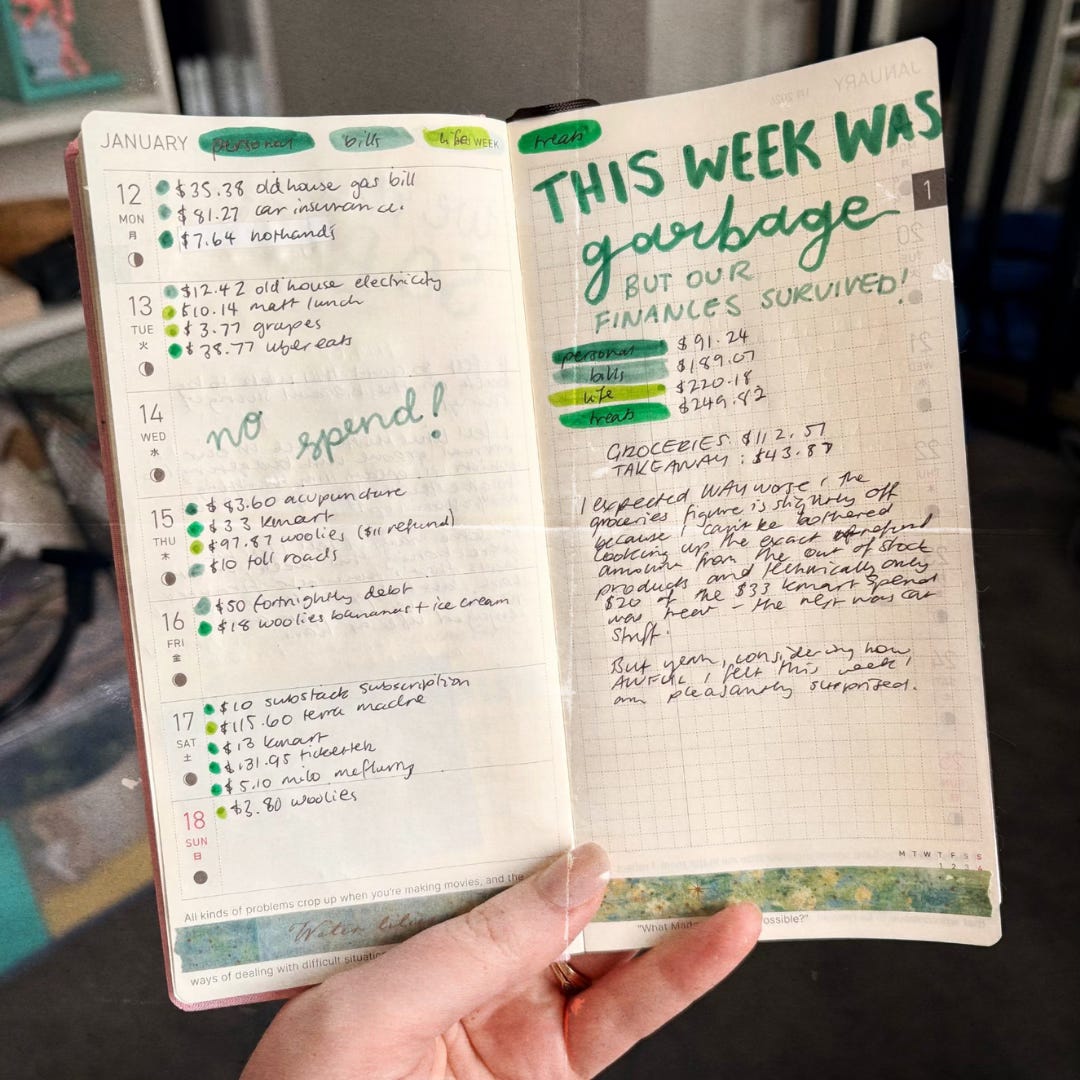 JANUARY personal bills life WEEK
12 MON 月
$35.38 old house gas bill
$81.27 car insurance.
$7.64 hothands
13 TUE 火
$12.42 old house electricity
$10.14 matt lunch
$3.77 grapes
$38.77 ubereats
14 WED 水
no spend!
15 THU 木
$83.60 acupuncture
$33 kmart
$97.87 woolies ($11 refund)
$10 toll roads
16 FRI 金
$50 fortnightly debt
$18 woolies bananas + ice cream
17 SAT 土
$10 substack subscription
$115.60 terra madre
$13 kmart
$131.95 ticketek
$5.10 milo mcflurry
18 SUN 日
$3.80 woolies
All kinds of problems crop up when you're making movies, and the
Water lili
ways of dealing with difficult situatio
treats
THIS WEEK WAS
garbage
BUT OUR
FINANCES SURVIVED!
1
personal $91.24
bills $189.07
life $220.18
treats $249.82
GROCERIES: $112.57
TAKEAWAY: $43.87
I expected WAY worse, the
groceries figure is slightly off
because I can't be bothered
looking up the exact refund
amount from the out of stock
products and technically only
$20 of the $33 kmart spend
was treat - the rest was car
stuff.
But yeah, considering how
AWFUL I felt this week I
am pleasantly surprised.
M T W T F S S
1 2 3 4
"What Mad ossible?"